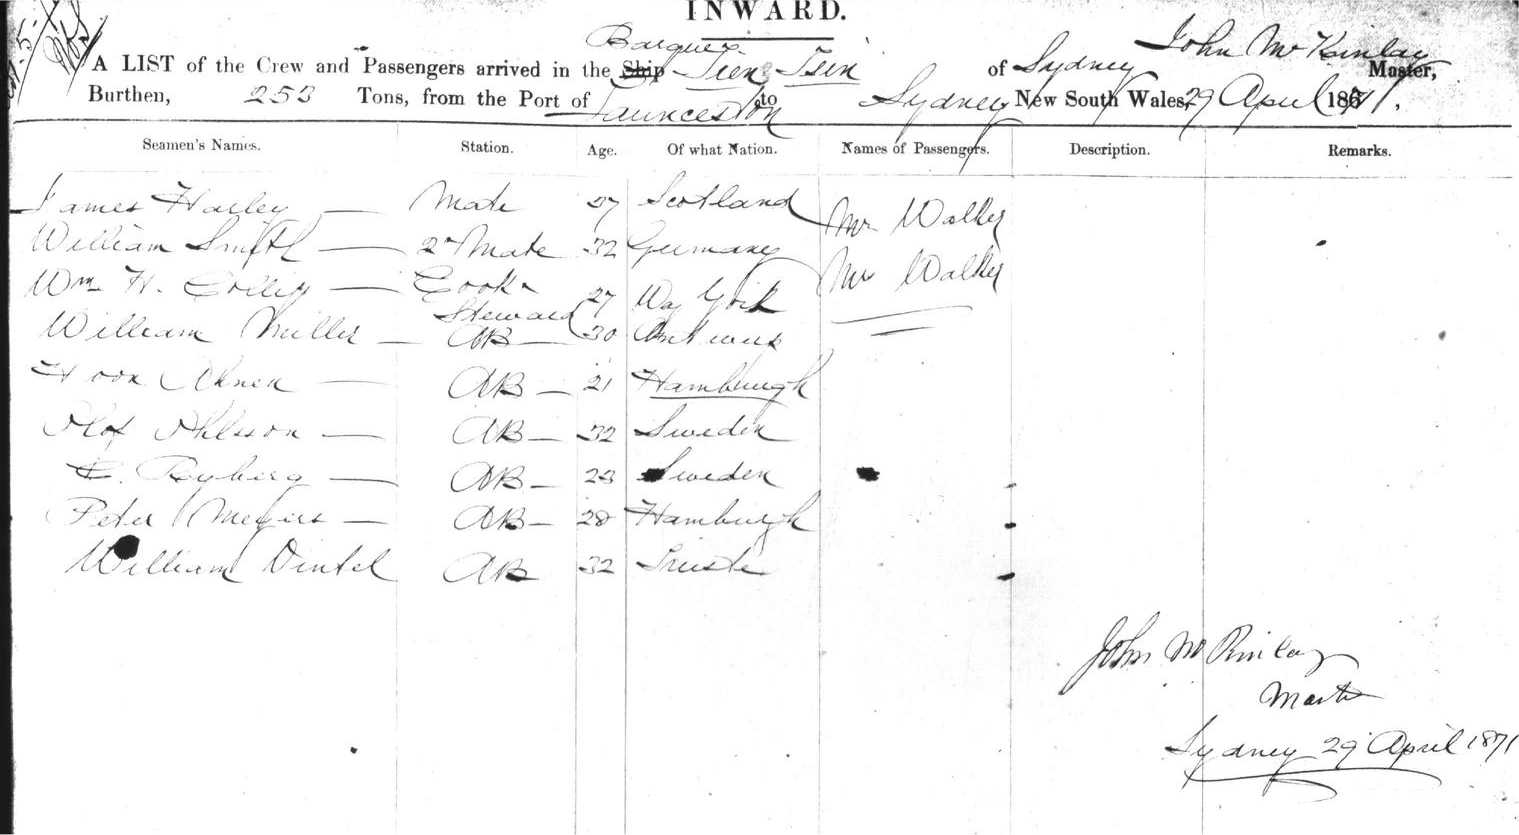 INWARD.
Barque
A LIST of the Crew and Passengers arrived in the Ship Tien Tsin of Sydney John McKinlay Master,
Burthen, 253 Tons, from the Port of Launceston to Sydney New South Wales, 29 April 1871.
Seamen's Names. Station. Age. Of what Nation. Names of Passengers. Description. Remarks.
James Harley — Mate 27 Scotland Mr Walker
William Smith — 2nd Mate 32 Germany Mr Walker
Wm H. — Cook & Steward 27
William Miller — AB — 30 Antwerp
AB — 21 Hamburgh
Olof Ohlsson — AB — 32 Sweden
Ryberg — AB — 23 Sweden
Peter Meyers — AB — 28 Hamburgh
William Dintel AB 32 Trieste
John McKinlay
Master
Sydney 29 April 1871